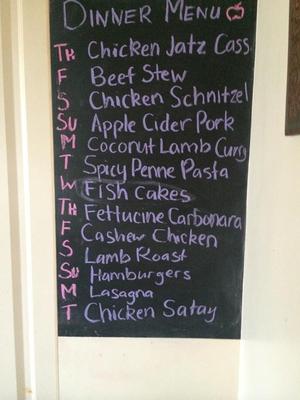 DINNER MENU
TH CHICKEN JATZ CASS
F BEEF STEW
S CHICKEN SCHNITZEL
SU APPLE CIDER PORK
M COCONUT LAMB CURRY
T SPICY PENNE PASTA
W FISH CAKES
TH FETTUCINE CARBONARA
F CASHEW CHICKEN
S LAMB ROAST
SU HAMBURGERS
M LASAGNA
T CHICKEN SATAY